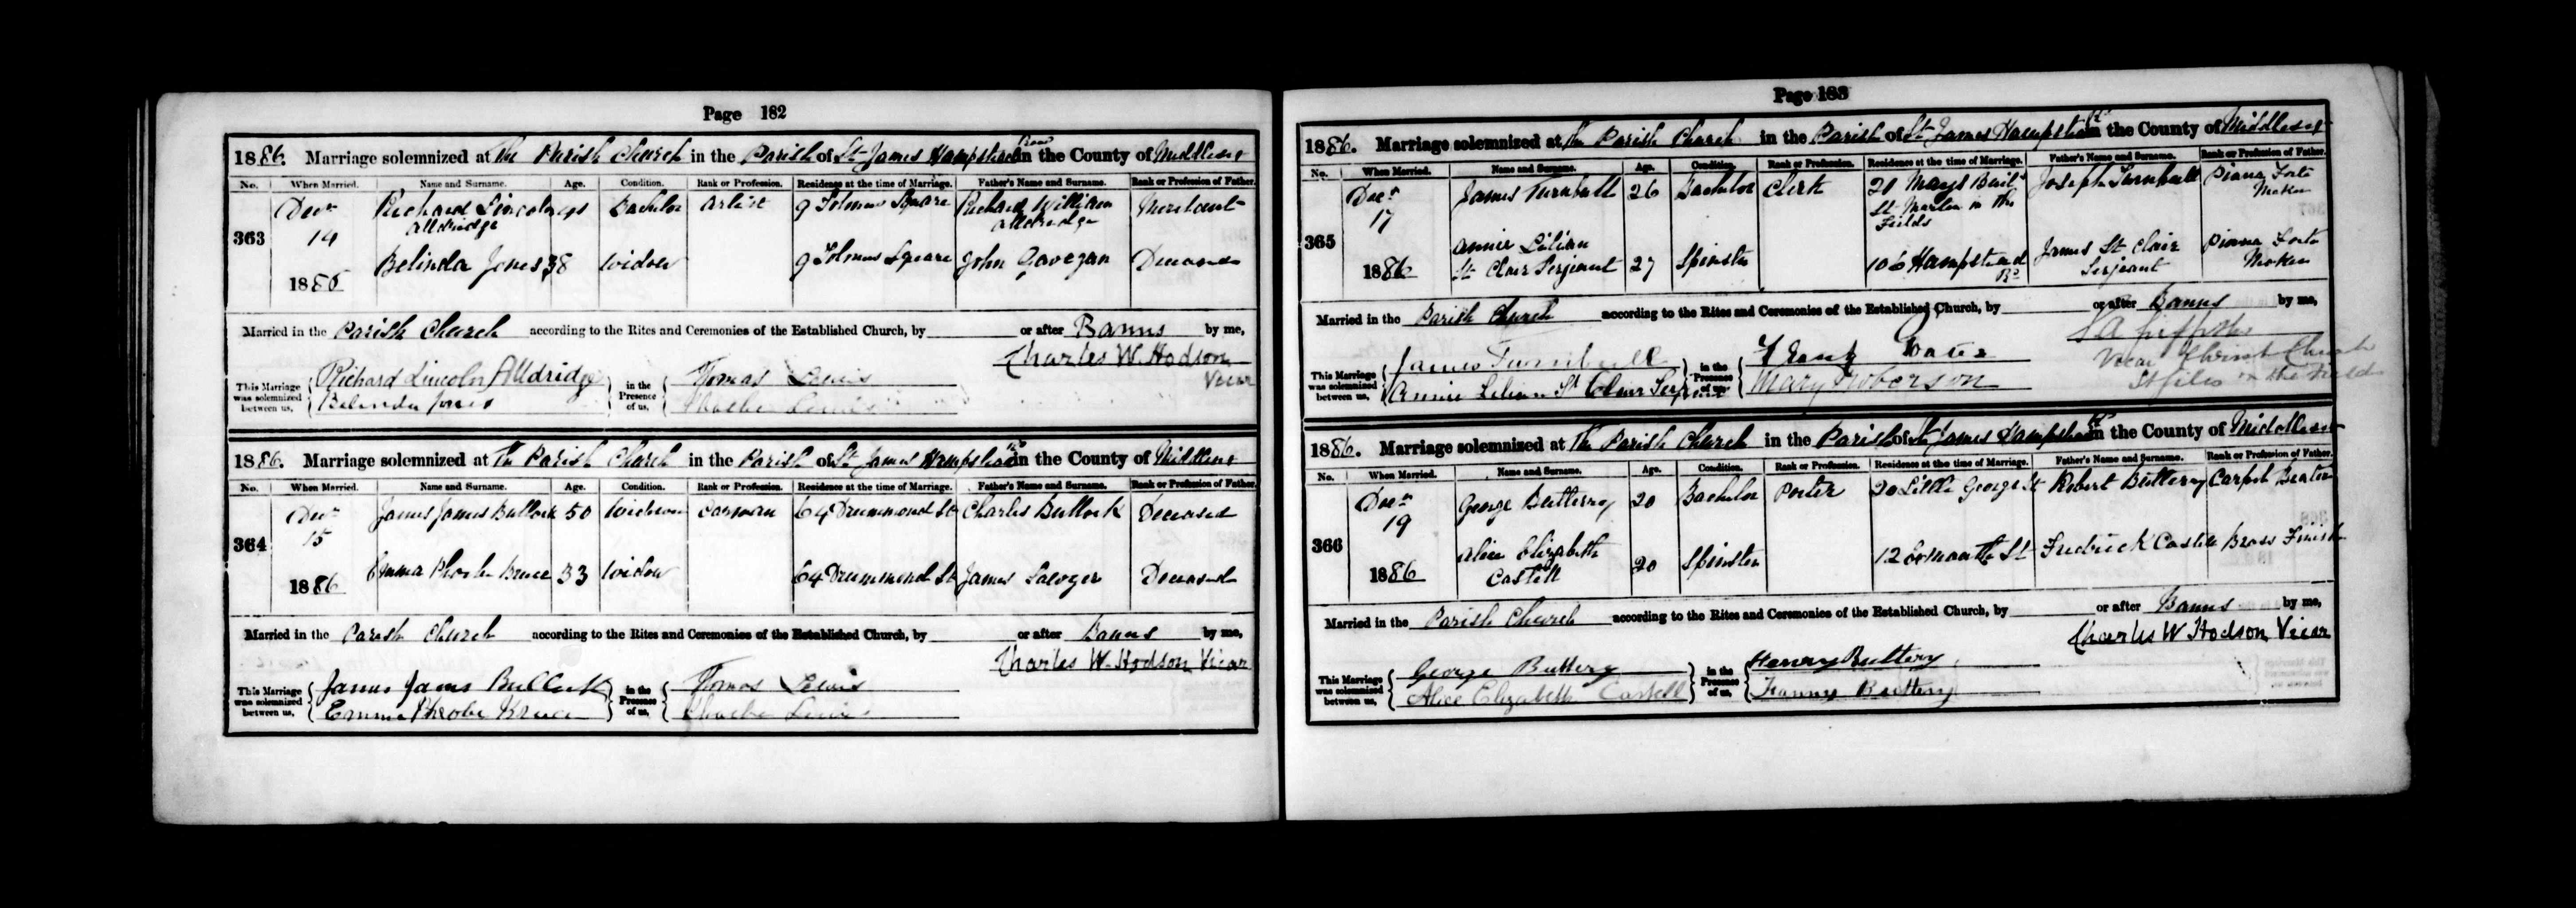 Page 182
1886. Marriage solemnized at The Parish Church in the Parish of St James Hampstead Road in the County of Middlesex
No. When Married. Name and Surname. Age. Condition. Rank or Profession. Residence at the time of Marriage. Father's Name and Surname. Rank or Profession of Father.
363 Decr 14 1886
Richard Lincoln Alldridge Bachelor Artist 9 Tolmers Square Richard William Alldridge Merchant
Belinda Jones 38 Widow 9 Tolmers Square John Gavegan Deceased
Married in the Parish Church according to the Rites and Ceremonies of the Established Church, by or after Banns by me,
Charles W. Hodson
Vicar
This Marriage was solemnized between us, Richard Lincoln Alldridge Belinda Jones in the Presence of us, Thomas Lewis Phoebe Lewis
1886. Marriage solemnized at The Parish Church in the Parish of St James Hampstead Rd in the County of Middlesex
No. When Married. Name and Surname. Age. Condition. Rank or Profession. Residence at the time of Marriage. Father's Name and Surname. Rank or Profession of Father.
364 Decr 15 1886
James James Bullock 50 Widower Carman 64 Drummond St Charles Bullock Deceased
Emma Phoebe Bruce 33 Widow 64 Drummond St James Deceased
Married in the Parish Church according to the Rites and Ceremonies of the Established Church, by or after Banns by me,
Charles W. Hodson Vicar
This Marriage was solemnized between us, James James Bullock Emma Phoebe in the Presence of us, Thomas Lewis Phoebe Lewis
Page 183
1886. Marriage solemnized at The Parish Church in the Parish of St James Hampstead Rd in the County of Middlesex
No. When Married. Name and Surname. Age. Condition. Rank or Profession. Residence at the time of Marriage. Father's Name and Surname. Rank or Profession of Father.
365 Decr 17 1886
James Turnbull 26 Bachelor Clerk Mays Builds St Martin in the Fields Joseph Turnbull Piano Forte Maker
Annie Lilian St Clair Serjeant 27 Spinster 106 Hampstead Rd James St Clair Serjeant Piano Forte Maker
Married in the Parish Church according to the Rites and Ceremonies of the Established Church, by or after Banns by me,
Vicar Christ Church
St Giles in the Fields
This Marriage was solemnized between us, James Turnbull Annie Lilian St Clair Serjeant in the Presence of us, Frank Mary
1886. Marriage solemnized at The Parish Church in the Parish of St James Hampstead Rd in the County of Middlesex
No. When Married. Name and Surname. Age. Condition. Rank or Profession. Residence at the time of Marriage. Father's Name and Surname. Rank or Profession of Father.
366 Decr 19 1886
George Buttery 20 Bachelor Porter 20 Little George St Robert Buttery Carpet Beater
Alice Elizabeth Castell 20 Spinster 12 Exmouth St Fredrick Castell Brass Finisher
Married in the Parish Church according to the Rites and Ceremonies of the Established Church, by or after Banns by me,
Charles W Hodson Vicar
This Marriage was solemnized between us, George Buttery Alice Elizabeth Castell in the Presence of us, Henry Buttery Fanny Buttery